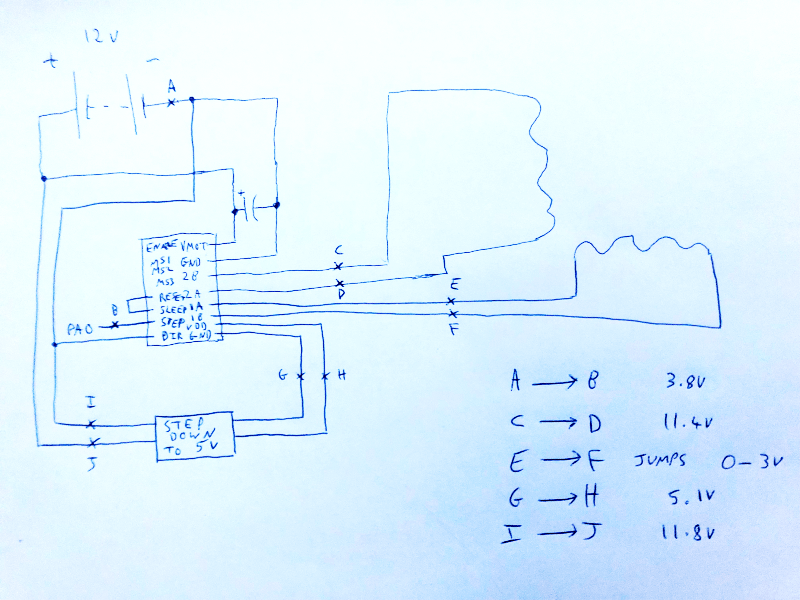 12V
+ -
A
+
ENABLE VMOT
MS1 GND
MS2 2B
MS3
RESET 2A
SLEEP 1A
STEP 1B
VDD
DIR GND
B
PA0
C
D
E
F
G H
I
J
STEP
DOWN
TO 5V
A → B 3.8V
C → D 11.4V
E → F JUMPS 0-3V
G → H 5.1V
I → J 11.8V